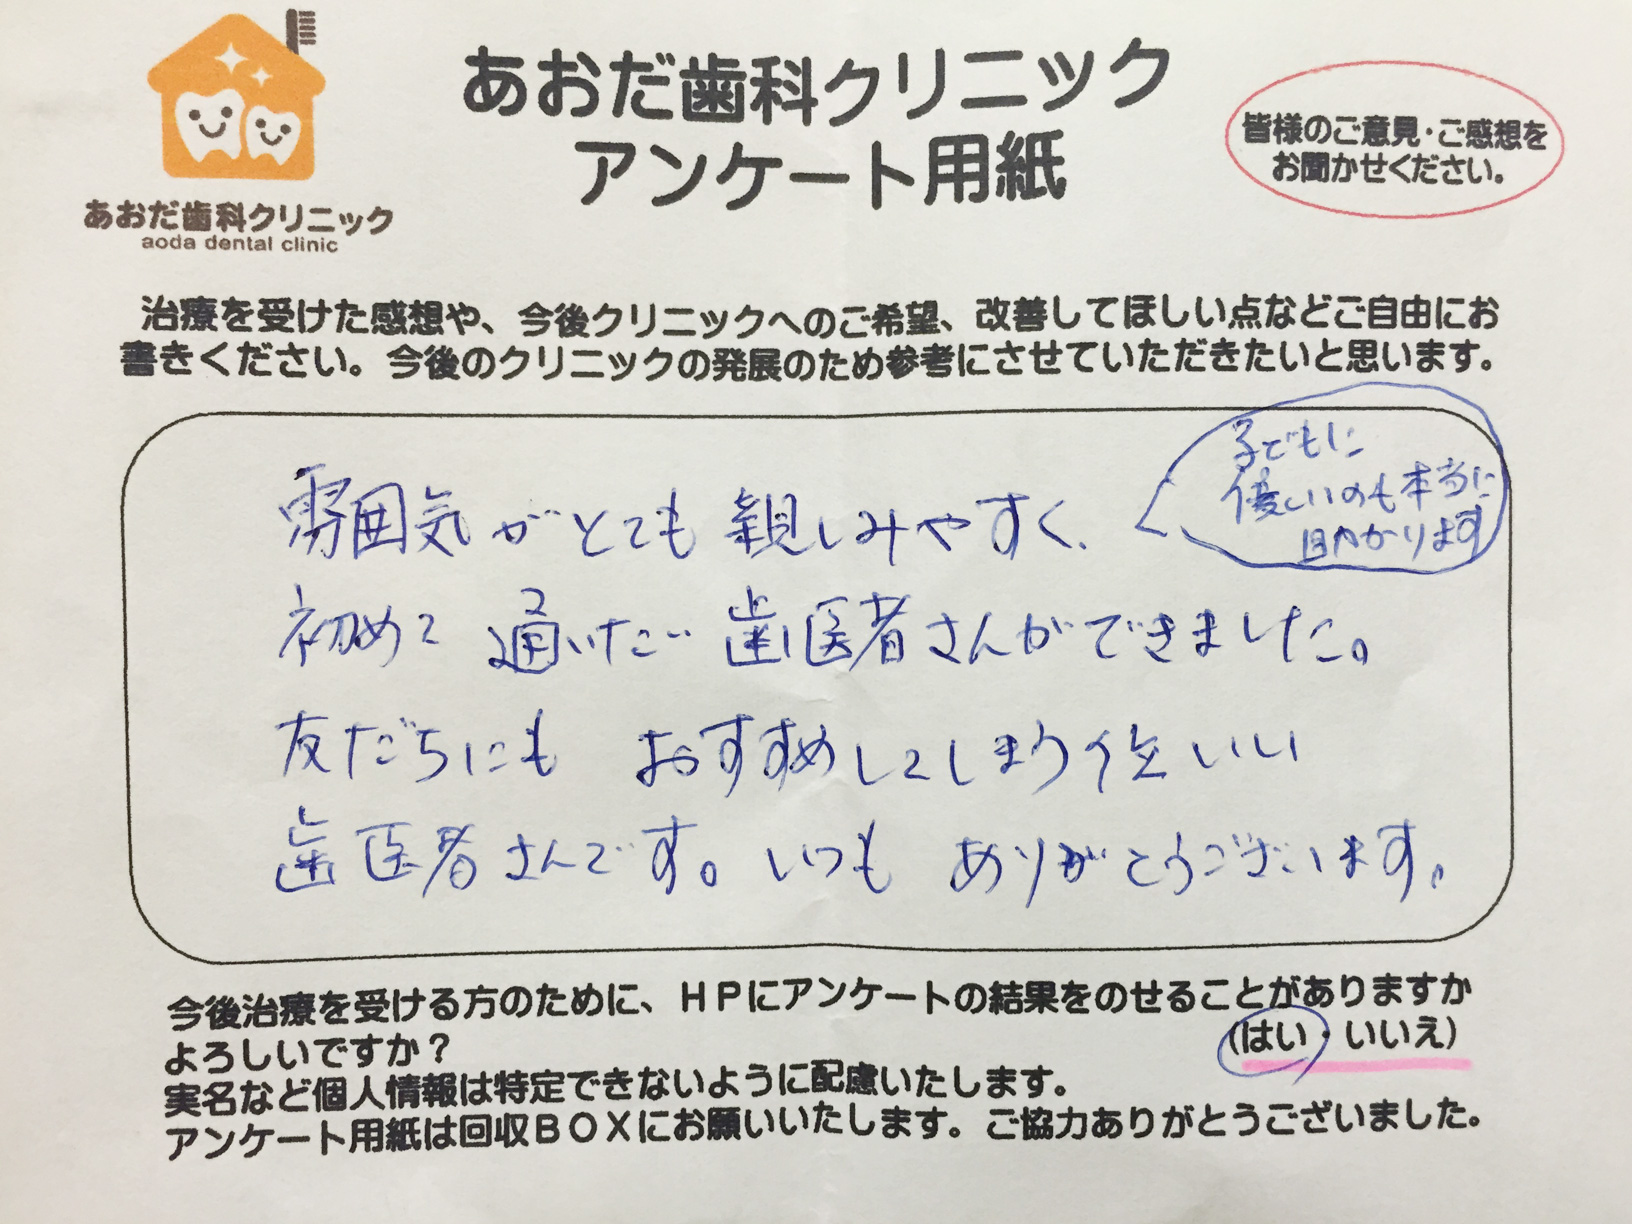 あおだ歯科クリニック
aoda dental clinic
あおだ歯科クリニック
アンケート用紙
皆様のご意見・ご感想を
お聞かせください。
治療を受けた感想や、今後クリニックへのご希望、改善してほしい点などご自由にお
書きください。今後のクリニックの発展のため参考にさせていただきたいと思います。
子どもに
優しいのも本当に
助かります
雰囲気がとても親しみやすく、
初めて通いたい歯医者さんができました。
友だちにもおすすめしてしまう位いい
歯医者さんです。いつもありがとうございます。
今後治療を受ける方のために、HPにアンケートの結果をのせることがありますか
よろしいですか?
(はい・いいえ)
実名など個人情報は特定できないように配慮いたします。
アンケート用紙は回収BOXにお願いいたします。ご協力ありがとうございました。